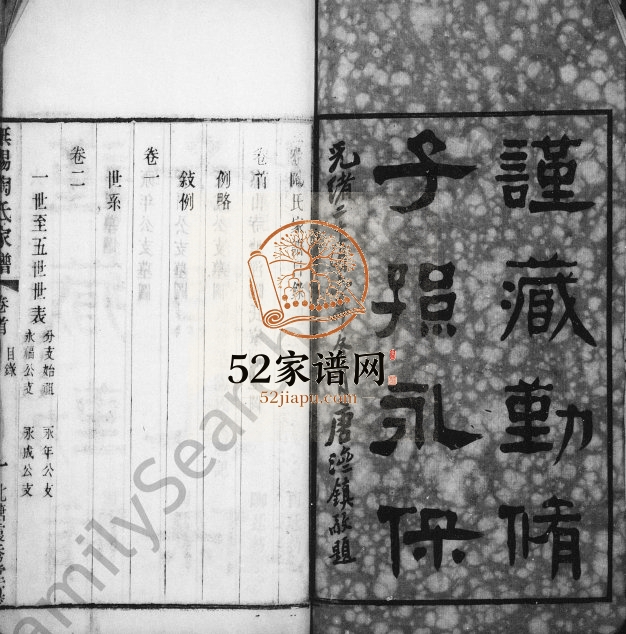 謹藏勤脩
子孫永保
光緒二
唐澄鎮敬題
陶氏家
卷首
例略
敍例
卷一
世系
卷二
一世至五世世表
分支始祖
永年公支
永福公支
永成公支
無錫陶氏家譜
卷首
目錄
一
52家谱网
52jiapu.com
FamilySearch